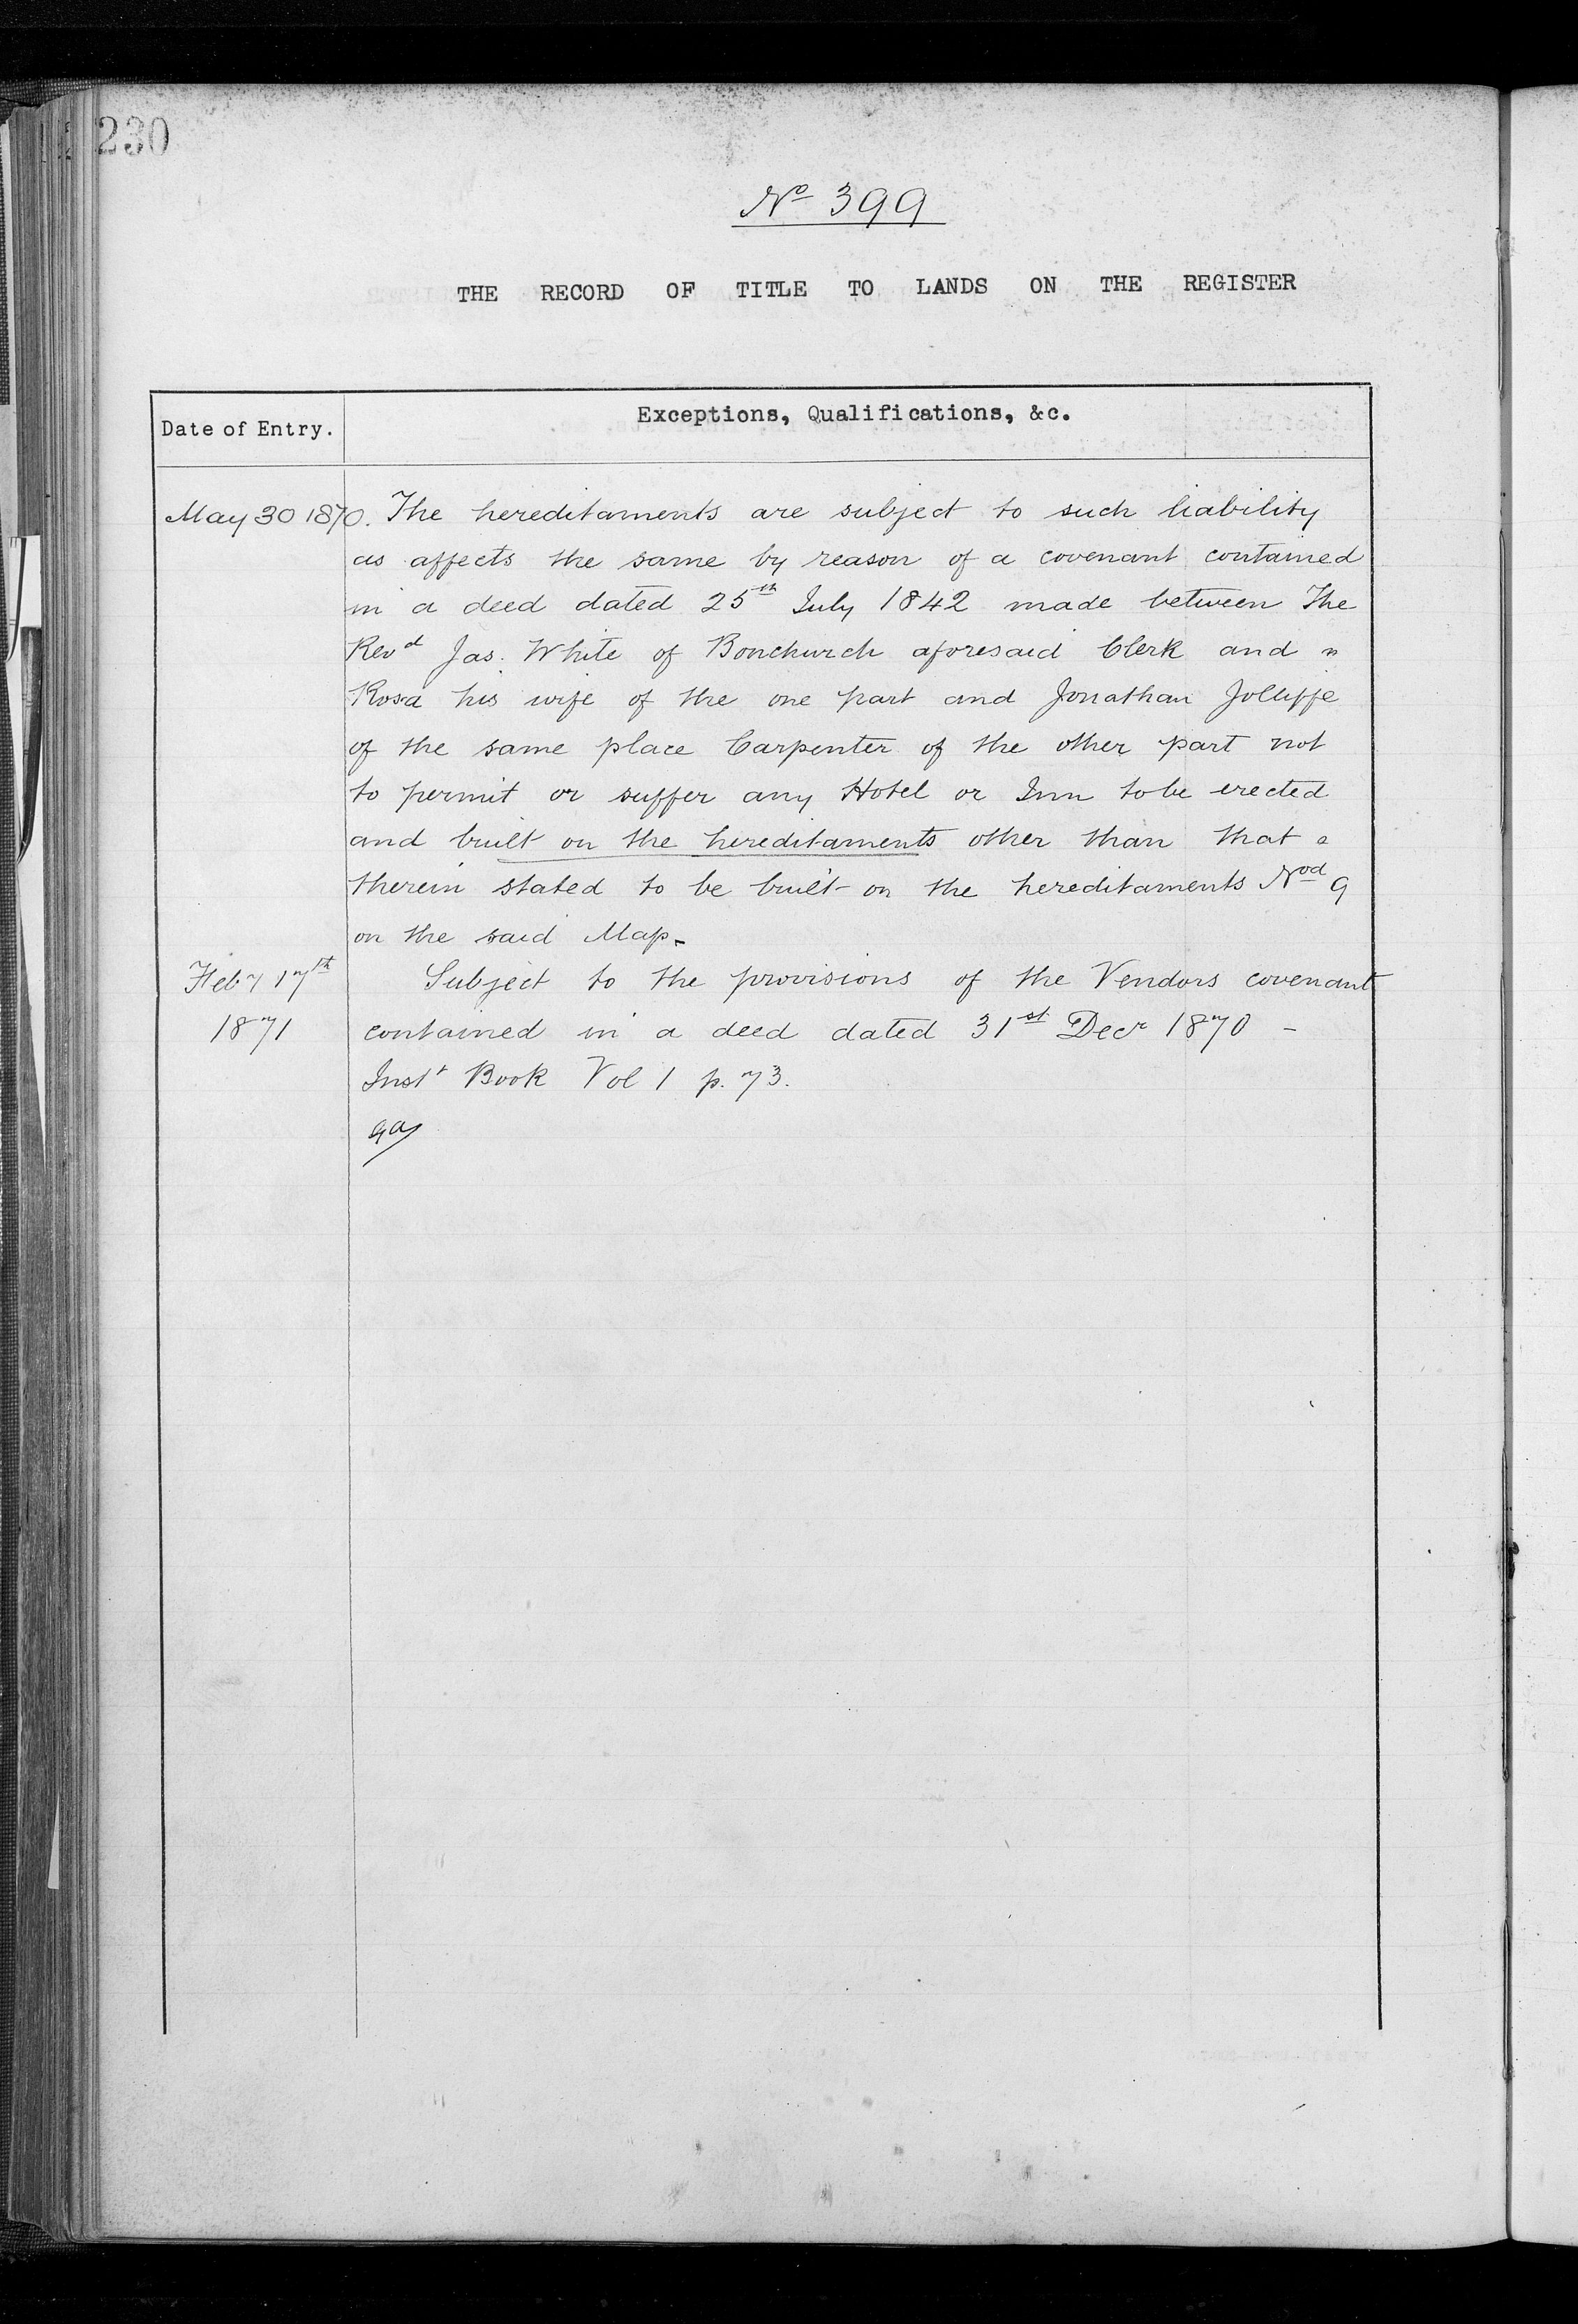 230
No 399
THE RECORD OF TITLE TO LANDS ON THE REGISTER
Date of Entry.
Exceptions, Qualifications, &c.
May 30 1870.
The hereditaments are subject to such liability
as affects the same by reason of a covenant contained
in a deed dated 25th July 1842 made between The
Revd Jas. White of Bonchurch aforesaid Clerk and
Rosa his wife of the one part and Jonathan Jolliffe
of the same place Carpenter of the other part not
to permit or suffer any Hotel or Inn to be erected
and built on the hereditaments other than that
therein stated to be built on the hereditaments Nod 9
on the said Map.
Feby 17th
1871
Subject to the provisions of the Vendors covenant
contained in a deed dated 31st Decr 1870 -
Inst Book Vol 1 p. 73.